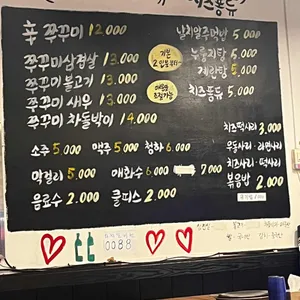 치즈퐁듀
辛 쭈꾸미 12.000
쭈꾸미삼겹살 13.000
쭈꾸미 불고기 13.000
쭈꾸미 새우 13.000
쭈꾸미 차돌박이 14.000
기본 2인분부터
날치알주먹밥 5.000
누룽지탕 5.000
계란탕 5.000
치즈퐁듀 5.000
소주 5.000 맥주 5.000 청하 6.000
막걸리 5.000 매화수 6.000 7.000
음료수 2.000 쿨피스 2.000
치즈떡사리 3.000
우동사리 · 라면사리
치즈사리 · 떡사리 2.000
볶음밥 2.000
0088